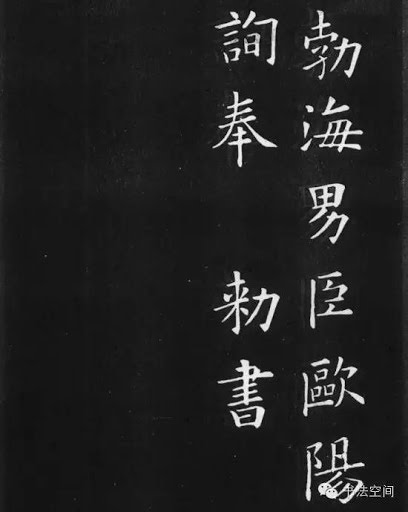 勃海男臣歐陽
詢奉 勑書
书法空间